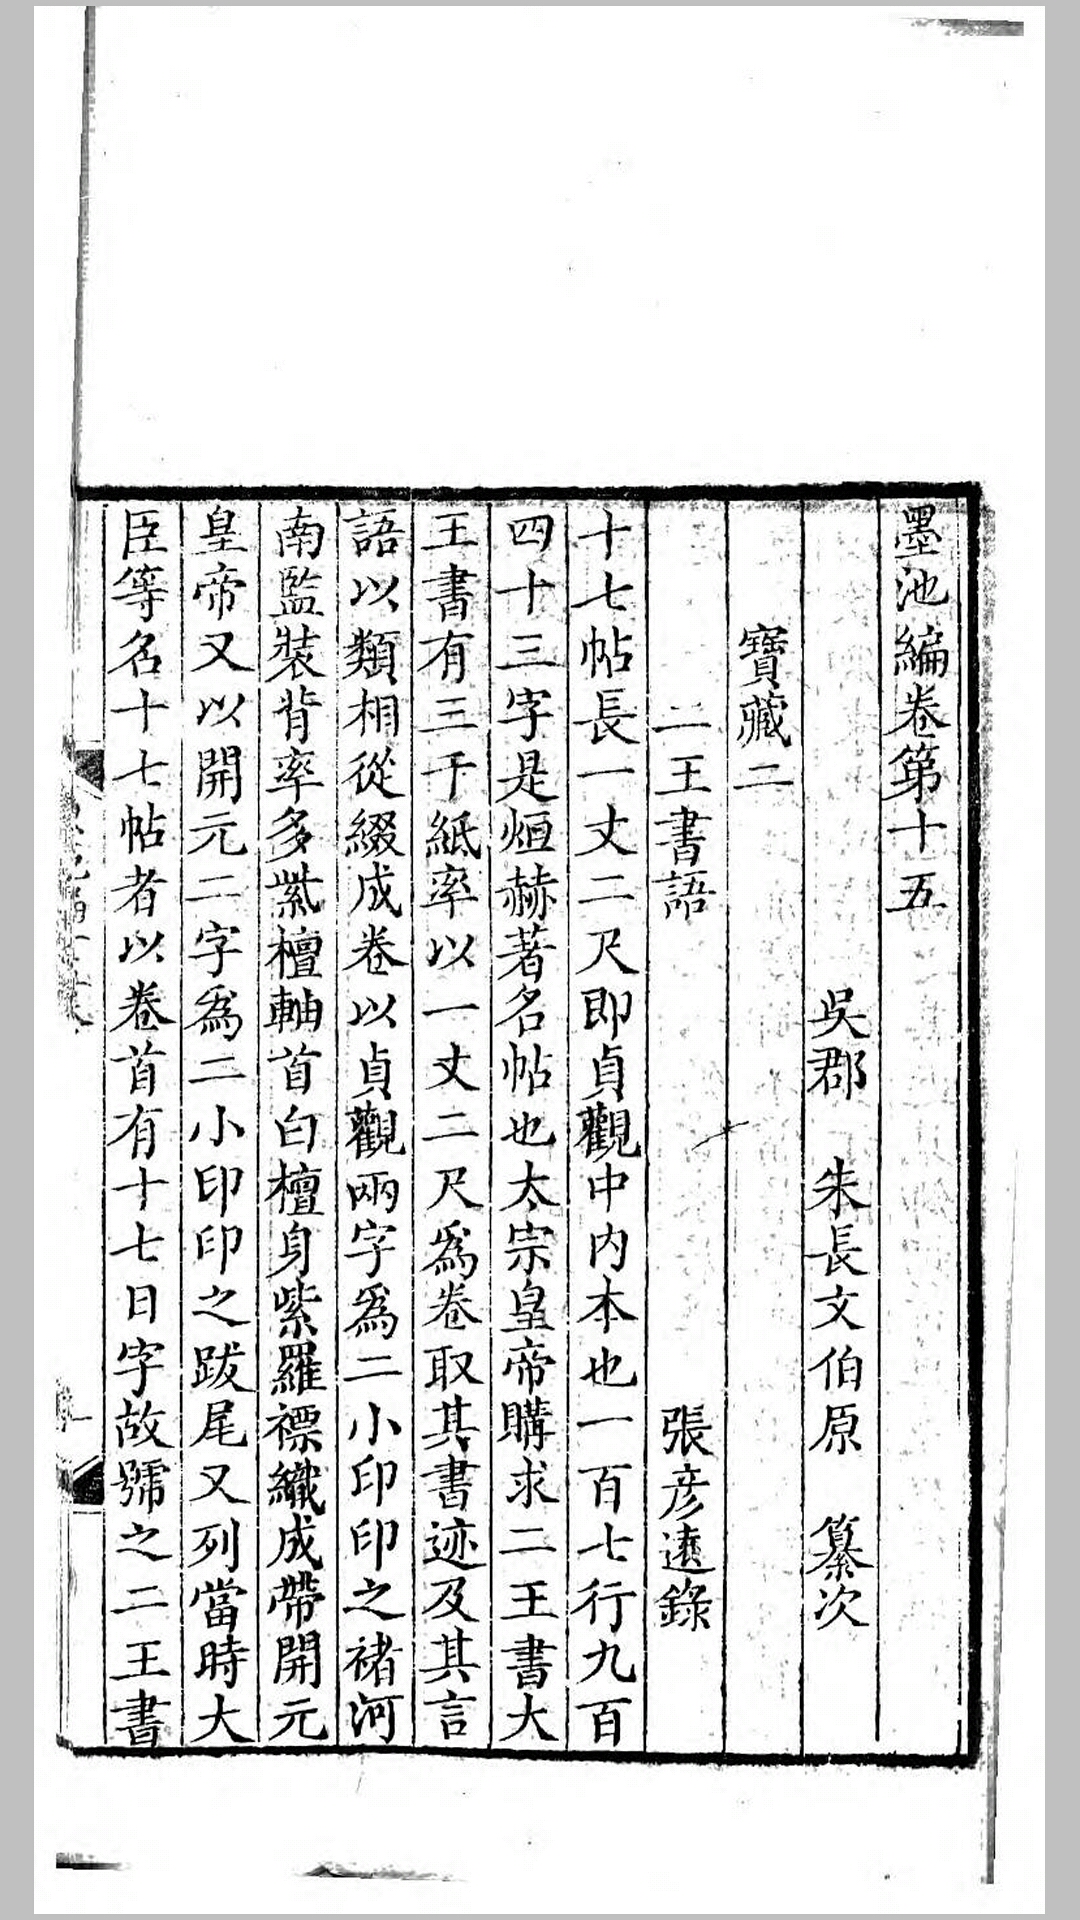 墨池編卷第十五
吳郡 朱長文伯原 纂次
寶藏二
二王書語 張彥遠錄
十七帖長一丈二尺即貞觀中內本也一百七行九百
四十三字是烜赫著名帖也太宗皇帝購求二王書大
王書有三千紙率以一丈二尺為卷取其書迹及其言
語以類相從綴成卷以貞觀兩字為二小印印之褚河
南監裝背率多紫檀軸首白檀身紫羅褾織成帶開元
皇帝又以開元二字為二小印印之跋尾又列當時大
臣等名十七帖者以卷首有十七日字故號之二王書